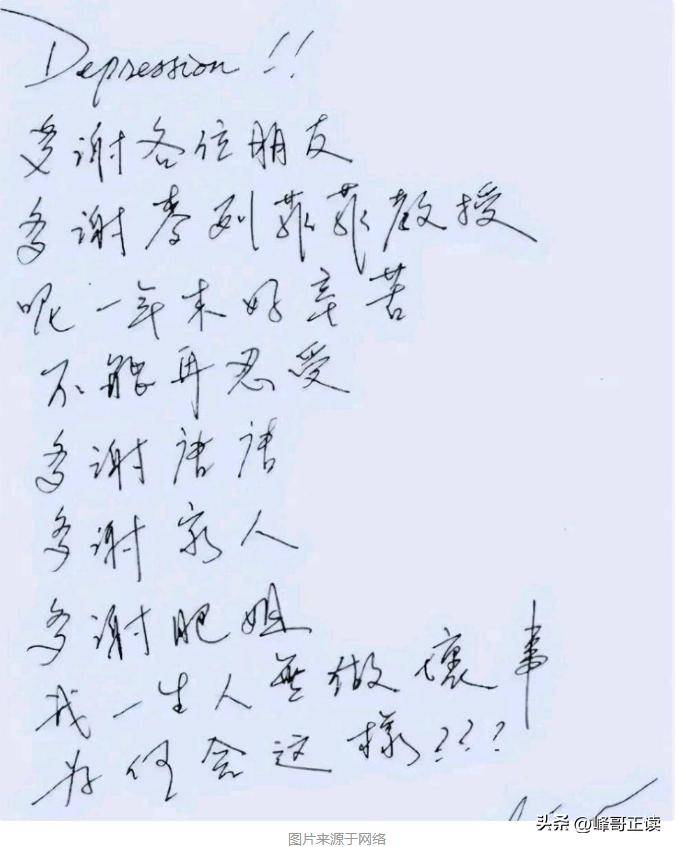 Depression!!
多谢各位朋友
多谢麥列菲菲教授
呢一年来好辛苦
不能再忍受
多谢唐唐
多谢家人
多谢肥姐
我一生人無做壞事
为何会这樣???
头条 @峰哥正读
图片来源于网络